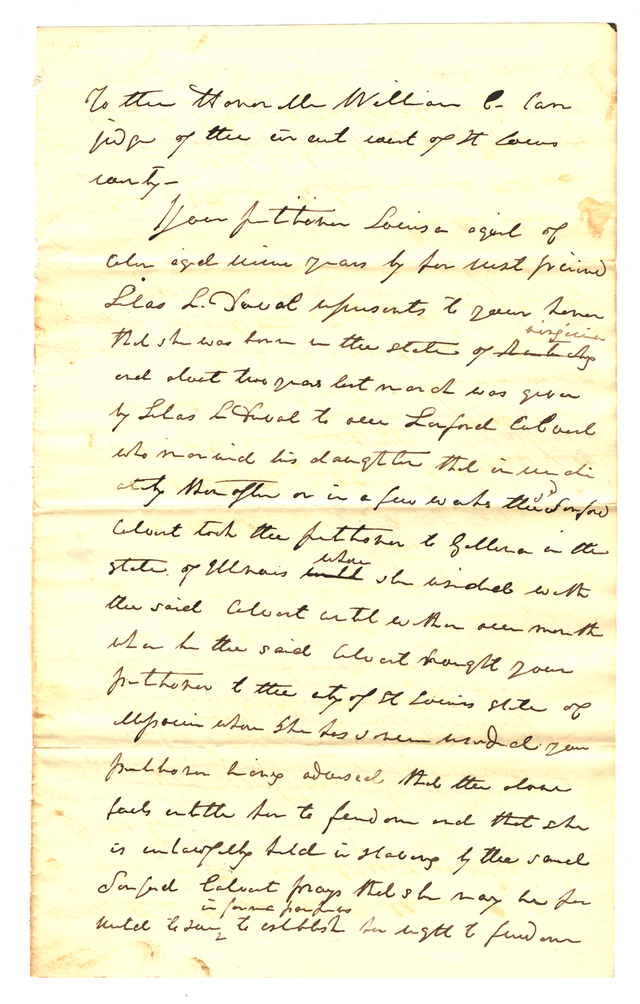 To the Honorable William C. Carr
judge of the circuit court of St Louis
county –
Your petitioner Louisa a girl of
color aged nine years by her next friend
Silas L. Duval represents to your honor
that she was born in the state of virginia
and about two years last march was given
by Silas L Duval to one Sanford Calvert
who married his daughter that immedi
ately thereafter or in a few weeks the sd Sanford
Calvert took the petitioner to Gallena in the
state of Illinois where she resided with
the said Calvert until within one month
when he the said Calvert brought your
petitioner to the city of St Louis state of
Missouri where she has since resided your
petitioner being advised that the above
facts entitle her to freedom and that she
is unlawfully held in slavery by the said
Sanford Calvert prays that she may be per
mitted to sue in forma pauperis to establish her right to freedom